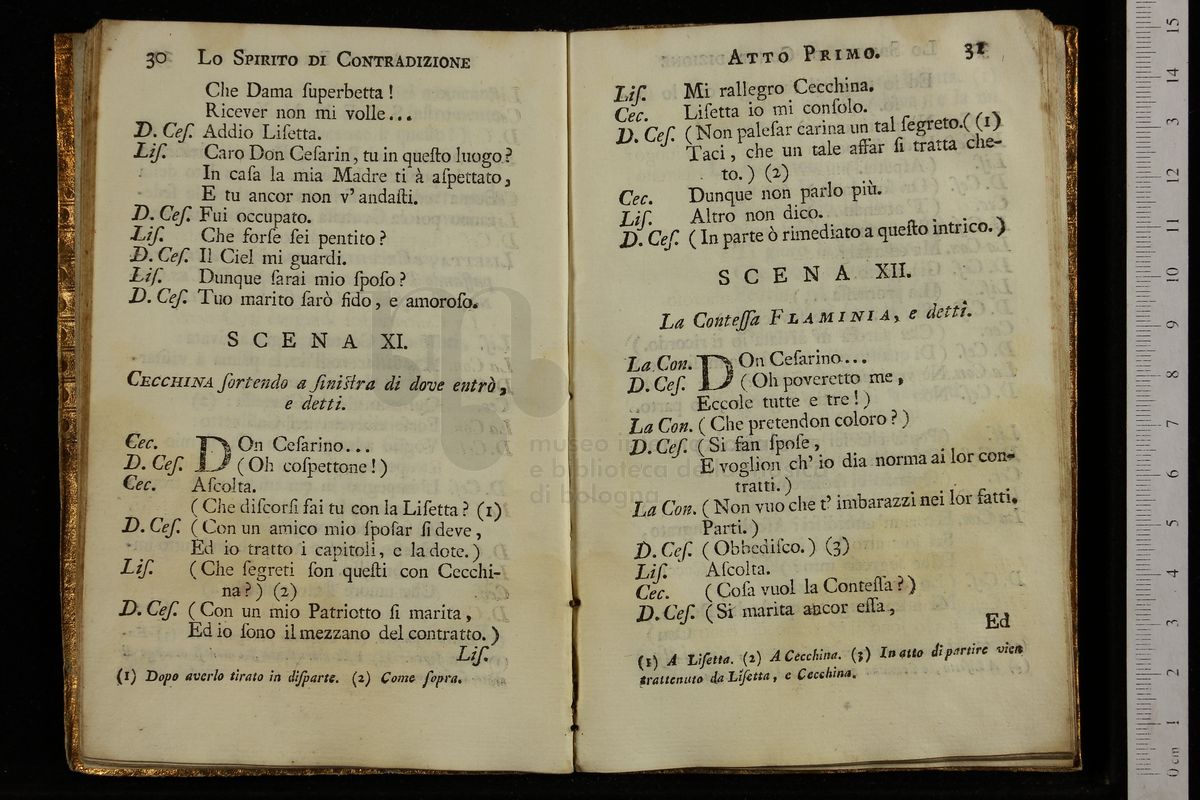 30 LO SPIRITO DI CONTRADIZIONE
Che Dama ſuperbetta !
Ricever non mi volle...
D. Ceſ. Addio Liſetta.
Liſ. Caro Don Ceſarin, tu in queſto luogo?
In caſa la mia Madre ti à aſpettato,
E tu ancor non v' andaſti.
D. Ceſ. Fui occupato.
Liſ. Che forſe ſei pentito?
D. Ceſ. Il Ciel mi guardi.
Liſ. Dunque ſarai mio ſpoſo?
D. Ceſ. Tuo marito ſarò fido, e amoroſo.
SCENA XI.
CECCHINA ſortendo a ſiniſtra di dove entrò,
e detti.
Cec. DOn Ceſarino...
D. Ceſ. (Oh coſpettone!)
Cec. Aſcolta.
(Che diſcorſi fai tu con la Liſetta? (1)
D. Ceſ. (Con un amico mio ſpoſar ſi deve,
Ed io tratto i capitoli, e la dote.)
Liſ. (Che ſegreti ſon queſti con Cecchi-
na?) (2)
D. Ceſ. (Con un mio Patriotto ſi marita,
Ed io ſono il mezzano del contratto.)
Liſ.
(1) Dopo averlo tirato in diſparte. (2) Come ſopra.
ATTO PRIMO. 31
Liſ. Mi rallegro Cecchina.
Cec. Liſetta io mi conſolo.
D. Ceſ. (Non paleſar carina un tal ſegreto.( (1)
Taci, che un tale affar ſi tratta che-
to.) (2)
Cec. Dunque non parlo più.
Liſ. Altro non dico.
D. Ceſ. (In parte ò rimediato a queſto intrico.)
SCENA XII.
La Conteſſa FLAMINIA, e detti.
La Con. DOn Ceſarino...
D. Ceſ. (Oh poveretto me,
Eccole tutte e tre!)
La Con. (Che pretendon coloro?)
D. Ceſ. (Si fan ſpoſe,
E voglion ch' io dia norma ai lor con-
tratti.)
La Con. (Non vuo che t' imbarazzi nei lor fatti.
Parti.)
D. Ceſ. (Obbediſco.) (3)
Liſ. Aſcolta.
Cec. (Coſa vuol la Conteſſa?)
D. Ceſ. (Si marita ancor eſſa,
Ed
(1) A Liſetta. (2) A Cecchina. (3) In atto di partire vien
trattenuto da Liſetta, e Cecchina.
museo in
e biblioteca de
di bologna
0 cm 1 2 3 4 5 6 7 8 9 10 11 12 13 14 15